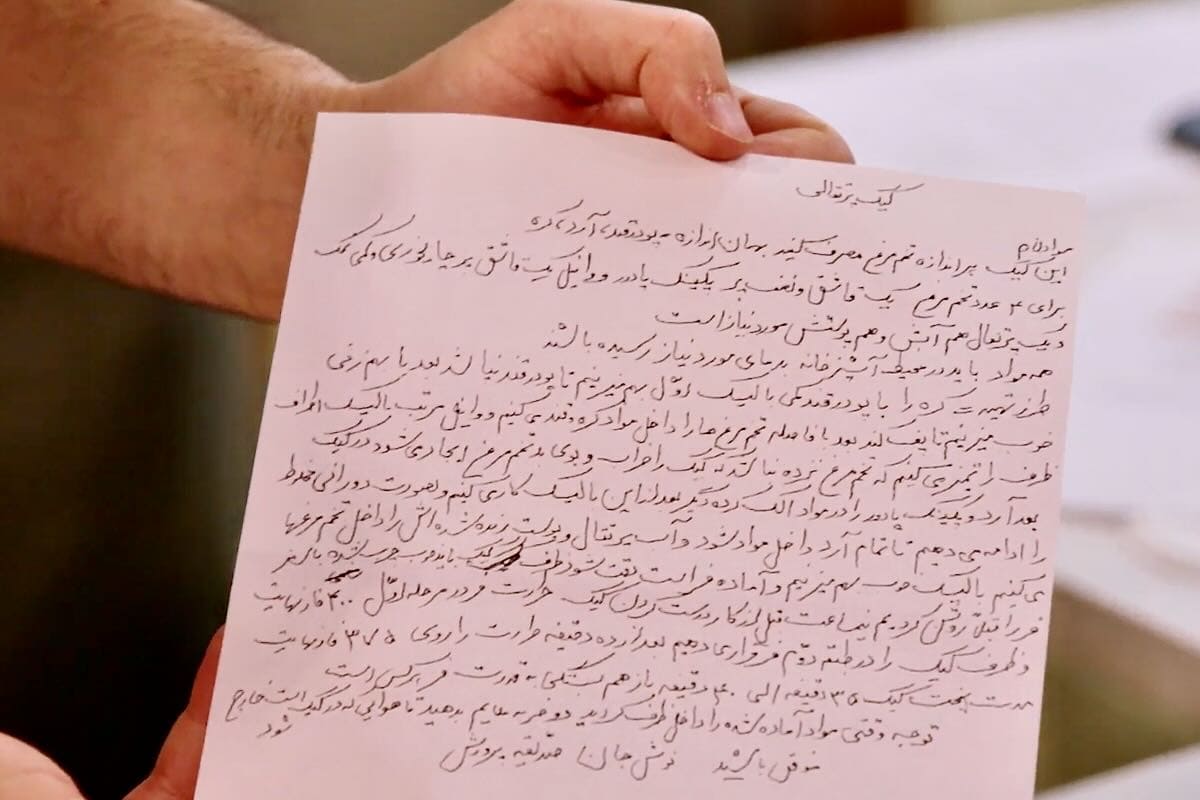 کیک پرتقالی
مواد لازم
این کیک هر اندازه تخم مرغ مصرف کنید بهمان اندازه = پودر قند، آرد، کره
برای ۴ عدد تخم مرغ یک قاشق و نصف پر بکینک پادور و وانیل یک قاشق پر چای خوری و کمی نمک
و یک پرتقال هم آبش و هم پوستش مورد نیاز است
همه مواد باید در محیط آشپزخانه به دمای مورد نیاز رسیده باشند
طرز تهیه = کره را با پودر قند کمی با لیسک اوّل بهم میزنیم تا پودر قند نپاشد بعد با همزن برقی
خوب میزنیم تا پف کند بعد با فاصله تخم مرغ ها را داخل مواد کره و قند می کنیم و وانیل مرتب با لیسک اطراف
ظرف را تمیز می کنیم که تخم مرغ نزده نباشد که کیک را خراب و بوی بد تخم مرغ ایجاد می شود در کیک
بعد آرد و بکینک پادور را در مواد الک کرده دیگر بعد از این با لیسک کار می کنیم و بصورت دورانی مخلوط
را ادامه می دهیم تا تمام آرد داخل مواد شود و آب پرتقال و پوست رنده شده اش را داخل تخم مرغها
می کنیم با لیسک خوب بهم میزنیم و آماده فر است دقت شود ظرف کیک باید چرب شده باشد
فر را قبلاً روشن کردیم نیم ساعت قبل از کار درست کردن کیک حرارت فر در مرحله اوّل ۴۰۰ فارنهایت
و ظرف کیک را در طبقه دوّم فر قرار می دهیم بعد از ده دقیقه حرارت را روی ۳۷۵ فارنهایت
مدت پخت کیک ۳۵ دقیقه الی ۴۰ دقیقه باز هم بستگی به قدرت فر هر کس است
توجه وقتی مواد آماده شده را داخل ظرف کردید دو ضربه ملایم بدهید تا هوایی که در کیک است خارج
شود
موفق باشید نوش جان صدیقه پرورش